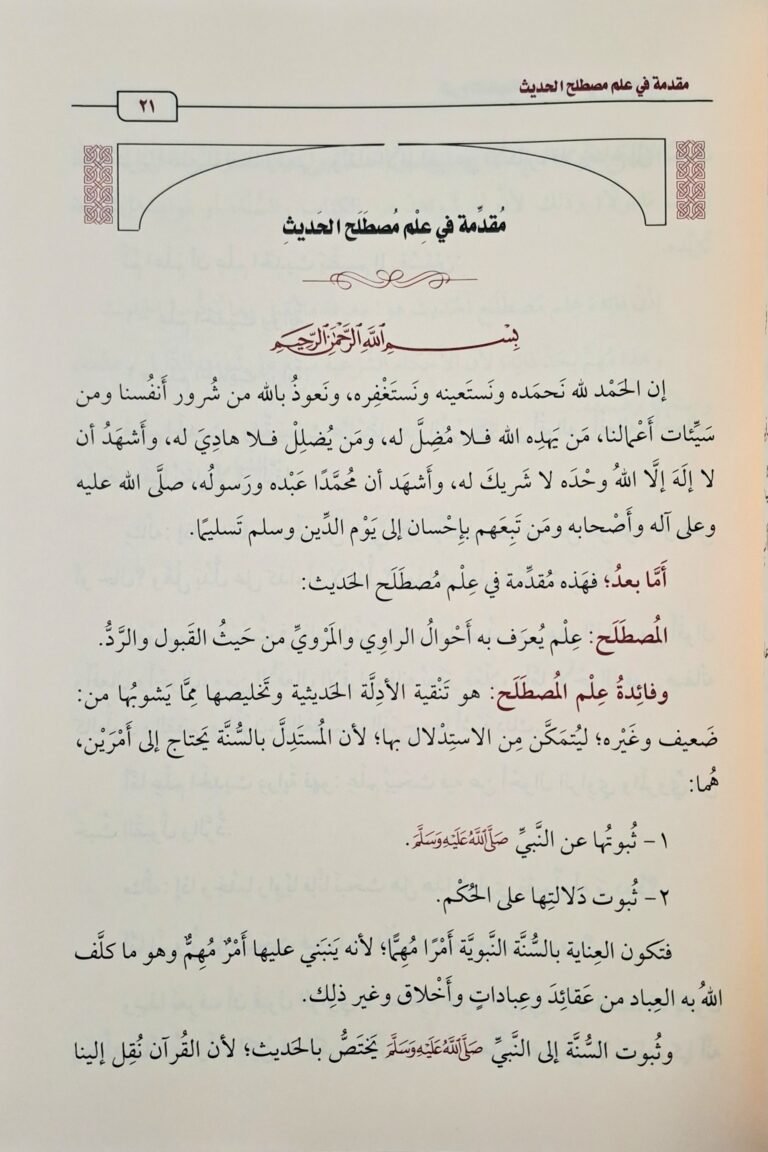 مقدمة في علم مصطلح الحديث
٢١
مُقدِّمة في عِلْم مُصطَلَح الحَديثِ
بِسْمِ ٱللَّهِ ٱلرَّحْمَٰنِ ٱلرَّحِيمِ
إن الحَمْد لله نَحمَده ونَستَعينه ونَستَغْفِره، ونَعوذُ بالله من شُرور أَنفُسنا ومن
سَيِّئات أَعْمالنا، مَن يَهدِه الله فـلا مُضِلَّ له، ومَن يُضلِلْ فـلا هادِيَ له، وأَشهَدُ أن
لا إلَهَ إلَّا اللهُ وحْدَه لا شَريكَ له، وأَشهَد أن مُحمَّدًا عَبْده ورَسولُه، صلَّى الله عليه
وعلى آله وأَصْحابه ومَن تَبِعَهم بإِحْسان إلى يَوْم الدِّين وسلم تَسليمًا.
أَمَّا بعدُ؛ فهَذه مُقدِّمة في عِلْم مُصطَلَح الحَديث:
المُصطَلَح: عِلْم يُعرَف به أَحْوالُ الراوِي والمَرْويِّ من حَيثُ القَبول والرَّدُّ.
وفائِدةُ عِلْم المُصطَلَح: هو تَنْقية الأدِلَّة الحَديثية وتَخليصها مِمَّا يَشوبُها من:
ضَعيف وغَيْره؛ ليُتمَكَّن مِن الاستِدْلال بها؛ لأن المُستَدِلَّ بالسُّنَّة يَحتاج إلى أَمْرَيْن،
هُما:
١- ثُبوتُها عن النَّبيِّ صَلَّى ٱللَّهُ عَلَيْهِ وَسَلَّمَ.
٢- ثُبوت دَلالتِها على الحُكْم.
فتكون العِناية بالسُّنَّة النَّبويَّة أَمْرًا مُهِمًّا؛ لأنه يَنبَني عليها أَمْرٌ مُهِمٌّ وهو ما كلَّف
اللهُ به العِباد من عَقائِدَ وعِباداتٍ وأَخْلاق وغير ذلِك.
وثُبوت السُّنَّة إلى النَّبيِّ صَلَّى ٱللَّهُ عَلَيْهِ وَسَلَّمَ يَختَصُّ بالحَديث؛ لأن القُرآن نُقِل إلينا